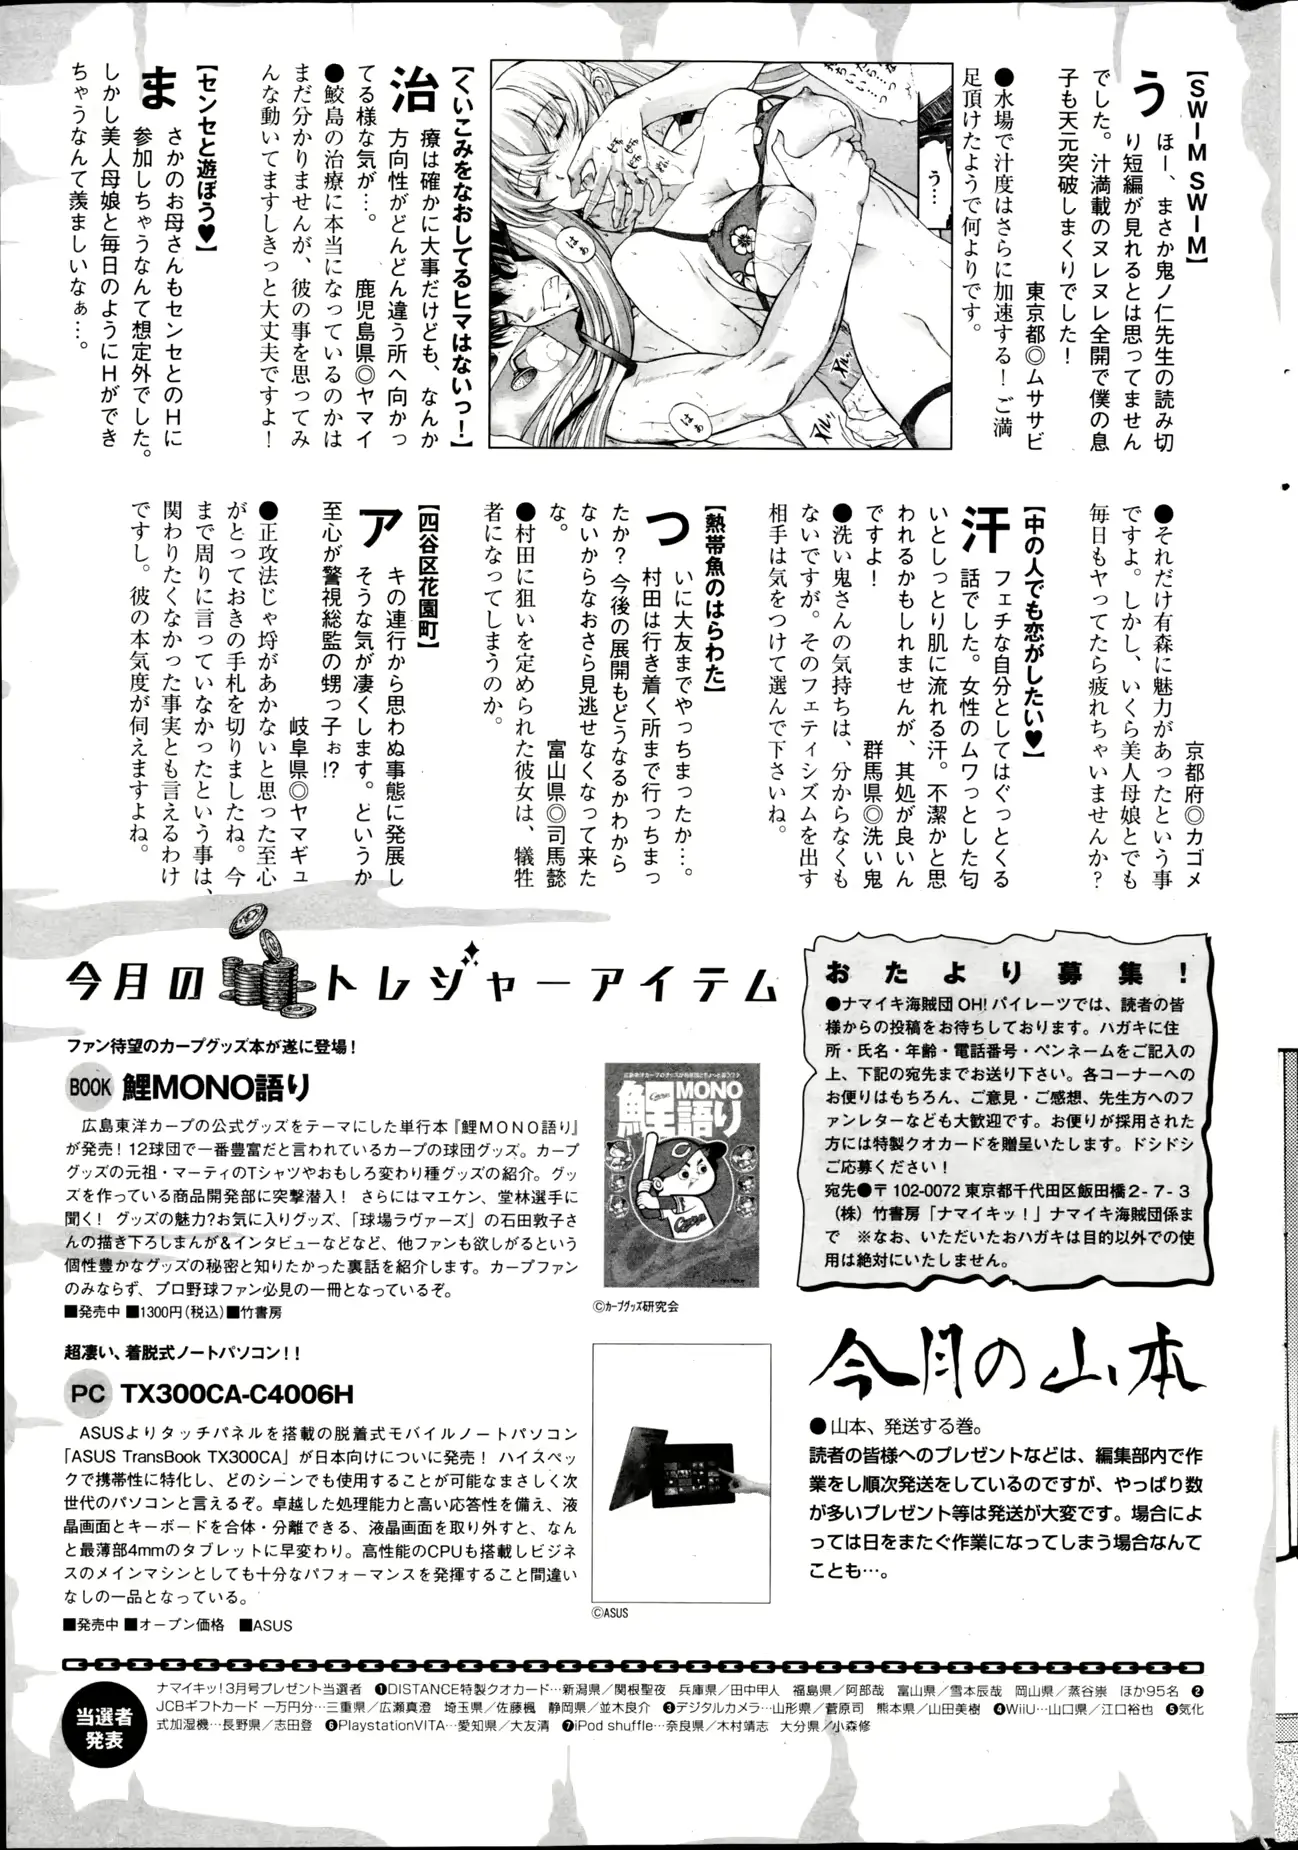 【SWIM SWIM】
うほー、まさか鬼ノ仁先生の読み切
り短編が見れるとは思ってません
でした。汁満載のヌレヌレ全開で僕の息
子も天元突破しまくりでした！
東京都◎ムササビ
●水場で汁度はさらに加速する！ご満
足頂けたようで何よりです。
【くいこみをなおしてるヒマはないっ！】
治療は確かに大事だけども、なんか
方向性がどんどん違う所へ向かっ
てる様な気が…。
鹿児島県◎ヤマイ
●鮫島の治療に本当になっているのかは
まだ分かりませんが、彼の事を思ってみ
んな動いてますしきっと大丈夫ですよ！
【センセと遊ぼう♥】
まさかのお母さんもセンセとのHに
参加しちゃうなんて想定外でした。
しかし美人母娘と毎日のようにHができ
ちゃうなんて羨ましいなぁ…。
京都府◎カゴメ
●それだけ有森に魅力があったという事
ですよ。しかし、いくら美人母娘とでも
毎日もヤってたら疲れちゃいませんか？
【中の人でも恋がしたい♥】
汗フェチな自分としてはぐっとくる
話でした。女性のムワっとした匂
いとしっとり肌に流れる汗。不潔かと思
われるかもしれませんが、其処が良いん
ですよ！
群馬県◎洗い鬼
●洗い鬼さんの気持ちは、分からなくも
ないですが。そのフェティシズムを出す
相手は気をつけて選んで下さいね。
【熱帯魚のはらわた】
ついに大友までやっちまったか…。
村田は行き着く所まで行っちまっ
たか？今後の展開もどうなるかわから
ないからなおさら見逃せなくなって来た
な。
富山県◎司馬懿
●村田に狙いを定められた彼女は、犠牲
者になってしまうのか。
【四谷区花園町】
アキの連行から思わぬ事態に発展し
そうな気が凄くします。というか
至心が警視総監の甥っ子ぉ!?
岐阜県◎ヤマギュ
●正攻法じゃ埒があかないと思った至心
がとっておきの手札を切りましたね。今
まで周りに言っていなかったという事は、
関わりたくなかった事実とも言えるわけ
ですし。彼の本気度が伺えますよね。
う…
はぁ
はぁ
今月のトレジャーアイテム
ファン待望のカープグッズ本が遂に登場！
BOOK 鯉MONO語り
広島東洋カープの公式グッズをテーマにした単行本『鯉MONO語り』
が発売！12球団で一番豊富だと言われているカープの球団グッズ。カープ
グッズの元祖・マーティのTシャツやおもしろ変わり種グッズの紹介。グッ
ズを作っている商品開発部に突撃潜入！ さらにはマエケン、堂林選手に
聞く！ グッズの魅力?お気に入りグッズ、「球場ラヴァーズ」の石田敦子さ
んの描き下ろしまんが&インタビューなどなど、他ファンも欲しがるという
個性豊かなグッズの秘密と知りたかった裏話を紹介します。カープファン
のみならず、プロ野球ファン必見の一冊となっているぞ。
■発売中 ■1300円(税込) ■竹書房
鯉MONO語り
©カープグッズ研究会
超凄い、着脱式ノートパソコン！！
PC TX300CA-C4006H
ASUSよりタッチパネルを搭載の脱着式モバイルノートパソコン
「ASUS TransBook TX300CA」が日本向けについに発売！ ハイスペッ
クで携帯性に特化し、どのシーンでも使用することが可能なまさしく次
世代のパソコンと言えるぞ。卓越した処理能力と高い応答性を備え、液
晶画面とキーボードを合体・分離できる、液晶画面を取り外すと、なん
と最薄部4mmのタブレットに早変わり。高性能のCPUも搭載しビジネ
スのメインマシンとしても十分なパフォーマンスを発揮すること間違い
なしの一品となっている。
■発売中 ■オープン価格 ■ASUS
©ASUS
おたより募集！
●ナマイキ海賊団OH!パイレーツでは、読者の皆
様からの投稿をお待ちしております。ハガキに住
所・氏名・年齢・電話番号・ペンネームをご記入の
上、下記の宛先までお送り下さい。各コーナーへの
お便りはもちろん、ご意見・ご感想、先生方へのフ
ァンレターなども大歓迎です。お便りが採用された
方には特製クオカードを贈呈いたします。ドシドシ
ご応募ください！
宛先●〒102-0072 東京都千代田区飯田橋2-7-3
（株）竹書房「ナマイキッ！」ナマイキ海賊団係ま
で ※なお、いただいたおハガキは目的以外での使
用は絶対にいたしません。
今月の山本
●山本、発送する巻。
読者の皆様へのプレゼントなどは、編集部内で作
業をし順次発送をしているのですが、やっぱり数
が多いプレゼント等は発送が大変です。場合によ
っては日をまたぐ作業になってしまう場合なんて
ことも…。
当選者
発表
ナマイキッ！3月号プレゼント当選者 ❶DISTANCE特製クオカード…新潟県／関根聖夜 兵庫県／田中甲人 福島県／阿部哉 富山県／雪本辰哉 岡山県／蒸谷祟 ほか95名 ❷
JCBギフトカード一万円分…三重県／広瀬真澄 埼玉県／佐藤楓 静岡県／並木良介 ❸デジタルカメラ…山形県／菅原司 熊本県／山田美樹 ❹WiiU…山口県／江口裕也 ❺気化
式加湿機…長野県／志田登 ❻PlaystationVITA…愛知県／大友清 ❼iPod shuffle…奈良県／木村靖志 大分県／小森修